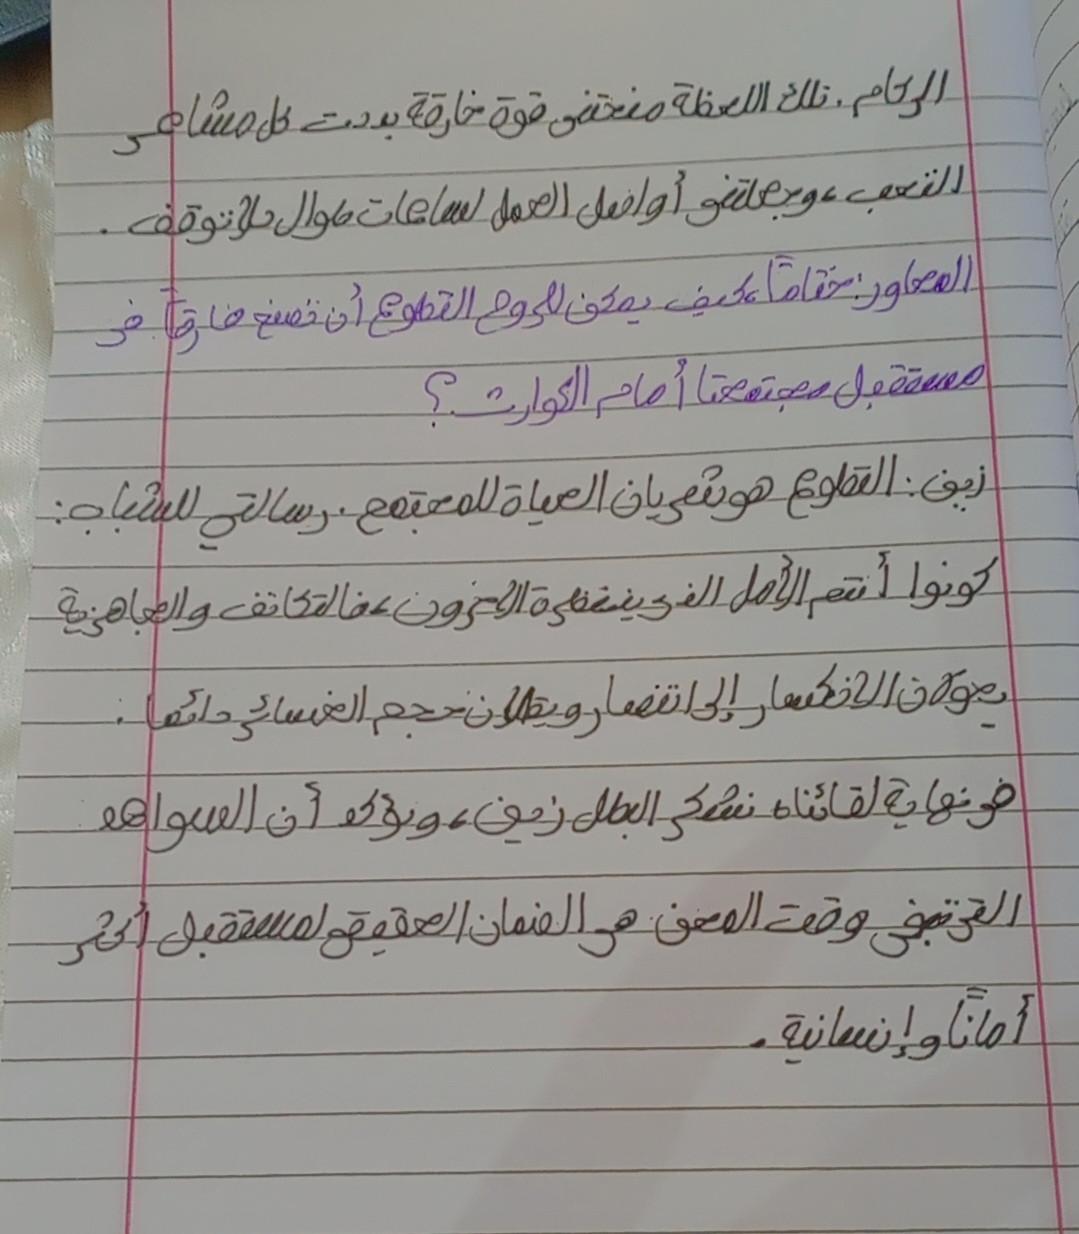 الركام. تلك اللحظة منحتني قوة خارقة بددت كل مشاعر
التعب، وجعلتني أواصل العمل لساعات طوال بلا توقف.
المحاور: ختاماً، كيف يمكن لروح التطوع أن تصنع فارقاً في
مستقبل مجتمعنا أمام الكوارث؟
زين: التطوع هو شريان الحياة للمجتمع. رسالتي للشباب:
كونوا أنتم الأمل الذي ينتظره الآخرون، فالتكاتف والجاهزية
يحولان الانكسار إلى انتصار ويقللان حجم الخسائر دائما.
في نهاية لقائنا، نشكر البطل زين، ونؤكد أن السواعد
التي تبني وقت المحن هي الضمان الحقيقي لمستقبل أكثر
أماناً وإنسانية.